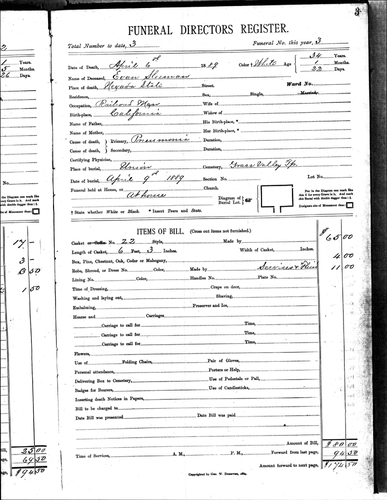 3
FUNERAL DIRECTORS REGISTER.
Total Number to date, 3 Funeral No. this year, 3
Date of Death, April 6th 1889 Color † White Age 34 Years.
1 Months.
22 Days.
Name of Deceased, Evan
Place of death, Nevada State Street. Ward No.
Residence, Sex, Single, Married,
Occupation, Railroad Wife of
Birthplace, California Widow of
Name of Father, His Birth-place, *
Name of Mother, Her Birth-place, *
Cause of death, Primary, Pneumonia Duration,
Cause of death, Secondary, Duration,
Certifying Physician,
Place of burial, Union Cemetery, Grass Valley
Date of burial, April 9th 1889 Section No. Lot No.
Funeral held at Home, At home Church.
Diagram of Burial Lot.
† State whether White or Black. * Insert Town and State.
ITEMS OF BILL. (Cross out Items not furnished.)
Casket or Coffin No. 22 Style, Made by $65.00
Length of Casket, 6 Feet, 3 Inches. Width of Casket, Inches.
Box, Pine, Chestnut, Oak, Cedar or Mahogany, 4 00
Robe, Shroud, or Dress No. Color, Made by Services & 11 00
Lining No. Color, Handles No. Plate No.
Time of Dressing, Crape on door,
Washing and laying out, Shaving,
Embalming, Preserver and Ice,
Hearse and Carriages,
Carriages to call for Time,
Carriages to call for Time,
Carriages to call for Time,
Carriages to call for Time,
Flowers,
Use of Folding Chairs, Pair of Gloves,
Personal attendance, Porters or Help,
Delivering Box to Cemetery, Use of Pedestals or Pall,
Badges for Bearers, Use of Candlesticks,
Inserting death Notices in Papers,
Bill to be charged to
Date Bill was presented Date Bill was paid
Amount of Bill, $80 00
Time of Services, A. M., P. M., Forward from last page, 94 50
Amount forward to next page, $174 50